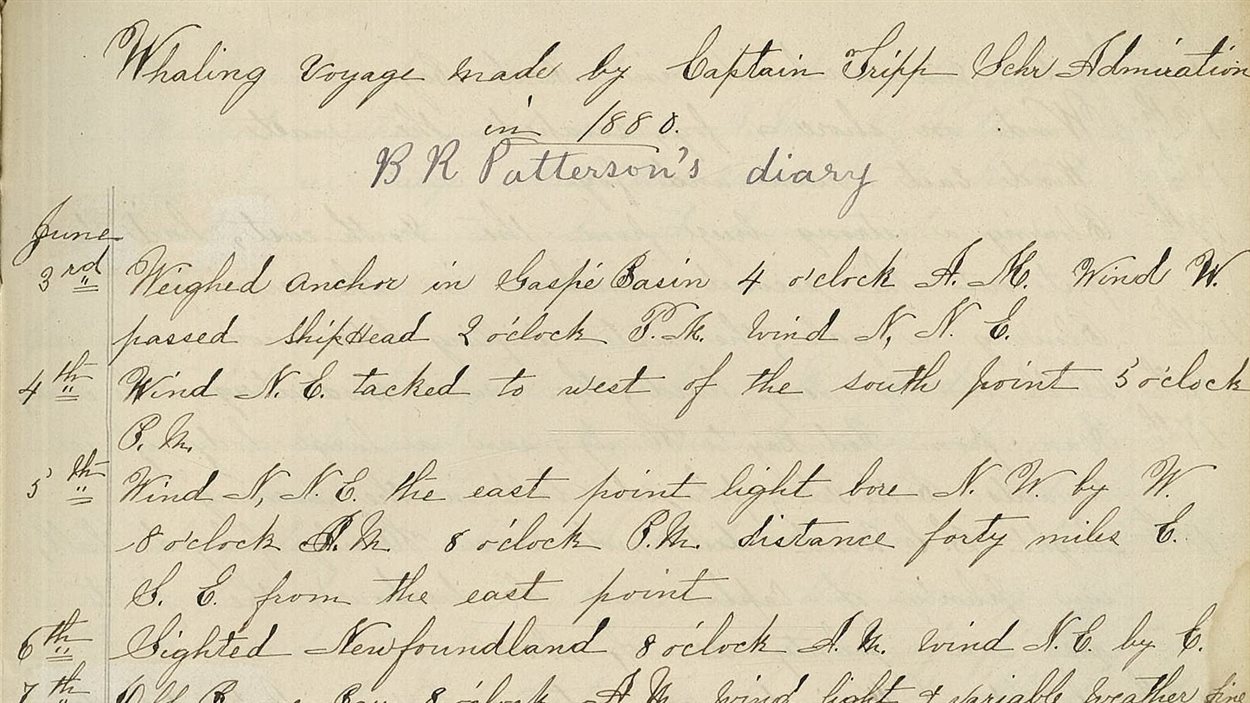 Whaling Voyage made by Captain Tripp Schr Admiration
in 1880.
B R Patterson's diary
June
3rd Weighed anchor in Gaspé Basin 4 o'clock A. M. Wind W.
passed shiphead 2 o'clock P. M. wind N, N. E.
4th Wind N. E. tacked to west of the south point 5 o'clock
P. M.
5th Wind N, N. E. the east point light bore N. W. by W.
8 o'clock A. M. 8 o'clock P. M. distance forty miles E.
S. E. from the east point
6th Sighted Newfoundland 8 o'clock A. M. wind N. E. by E.
7th Off Bay 8 o'clock A. M. wind light & variable weather fine